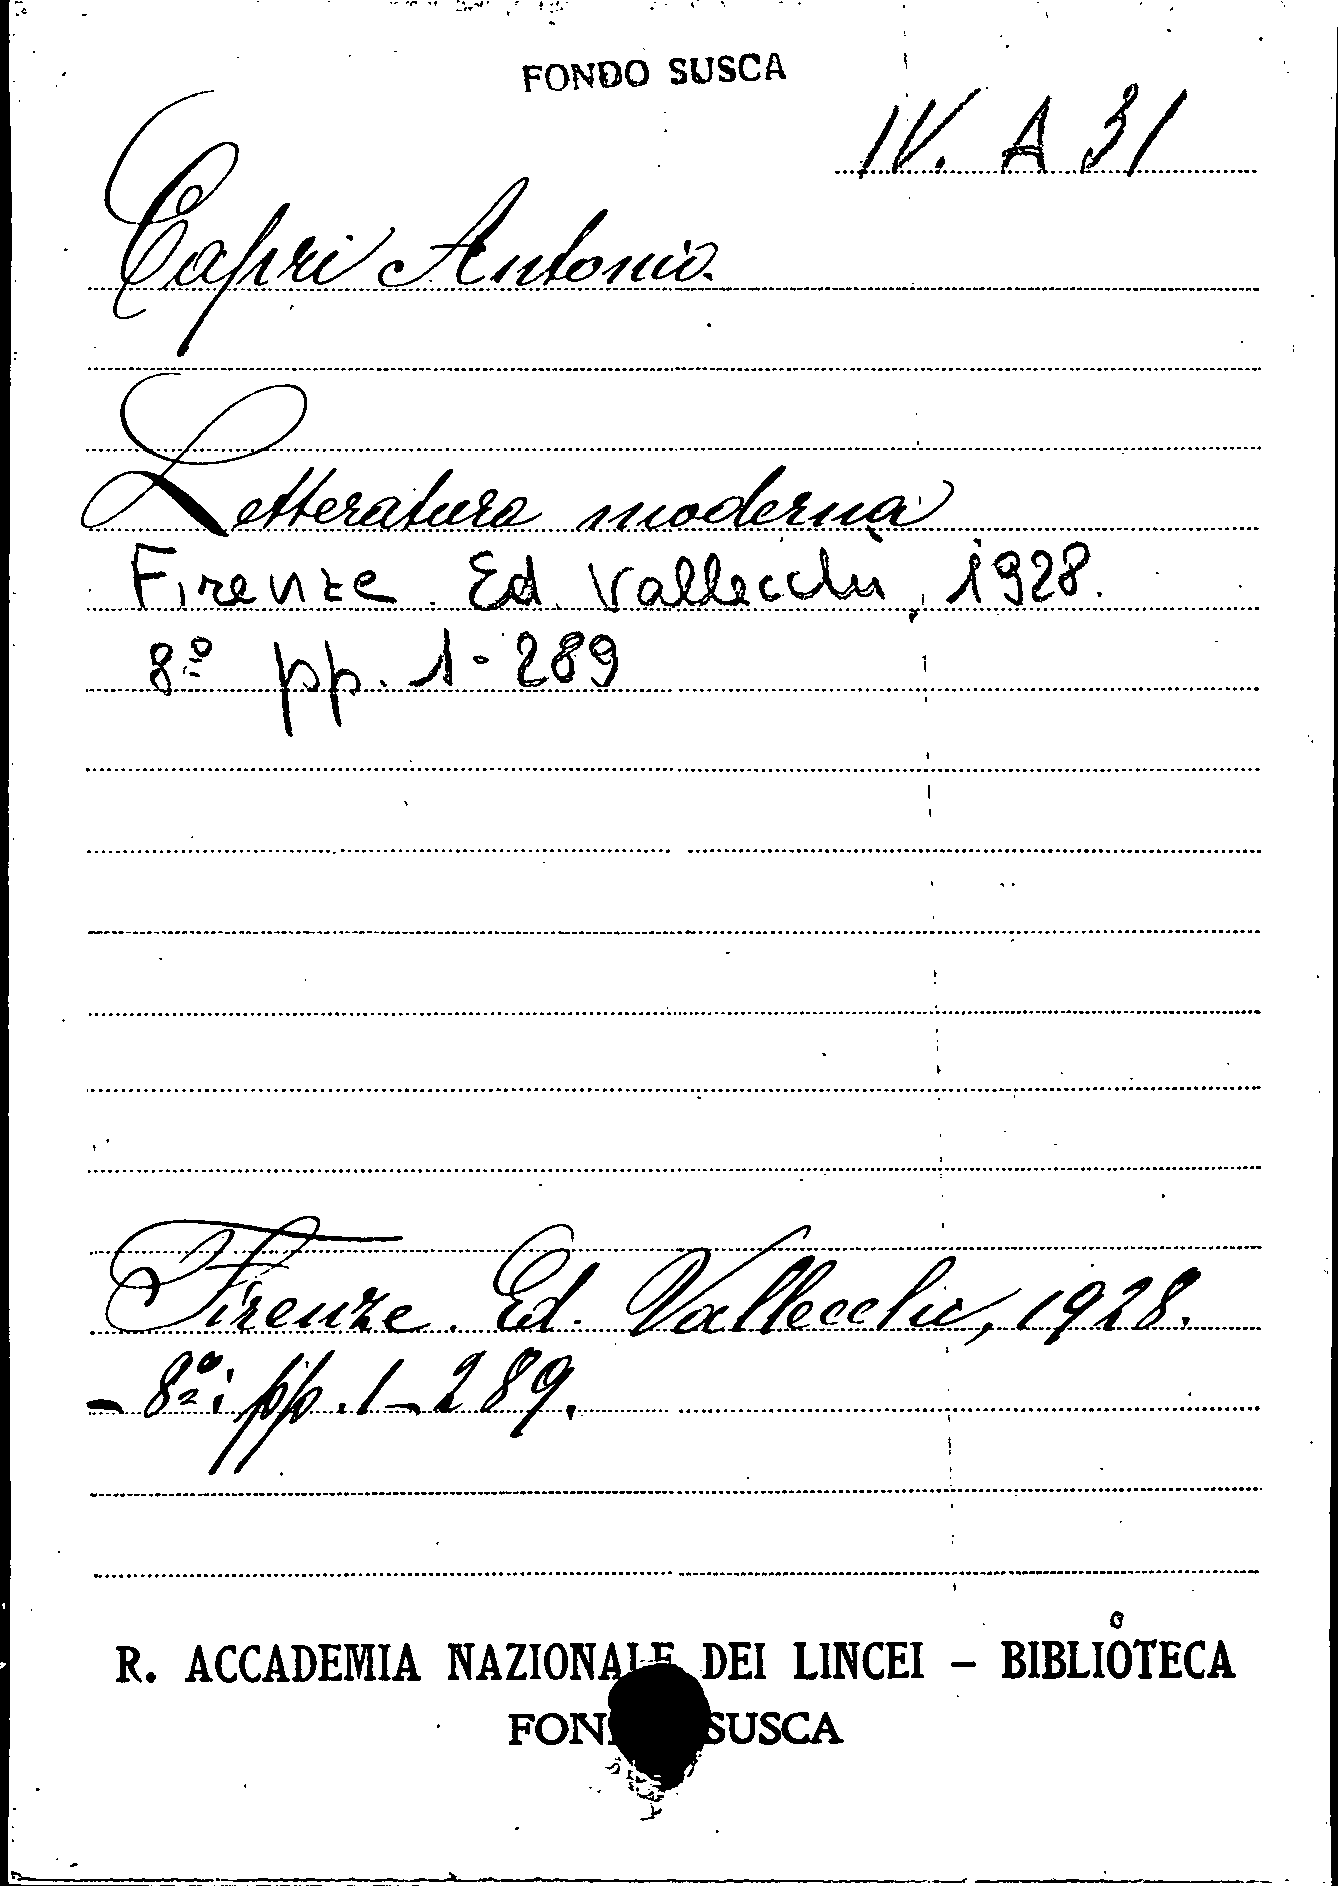 FONDO SUSCA
IV. A 31
Capri Antonio.
Letteratura moderna
Firenze. Ed. Vallecchi, 1928.
8º pp. 1-289
Firenze. Ed. Vallecchi, 1928.
- 8º: pp. 1-289.
R. ACCADEMIA NAZIONALE DEI LINCEI - BIBLIOTECA
FONDO SUSCA